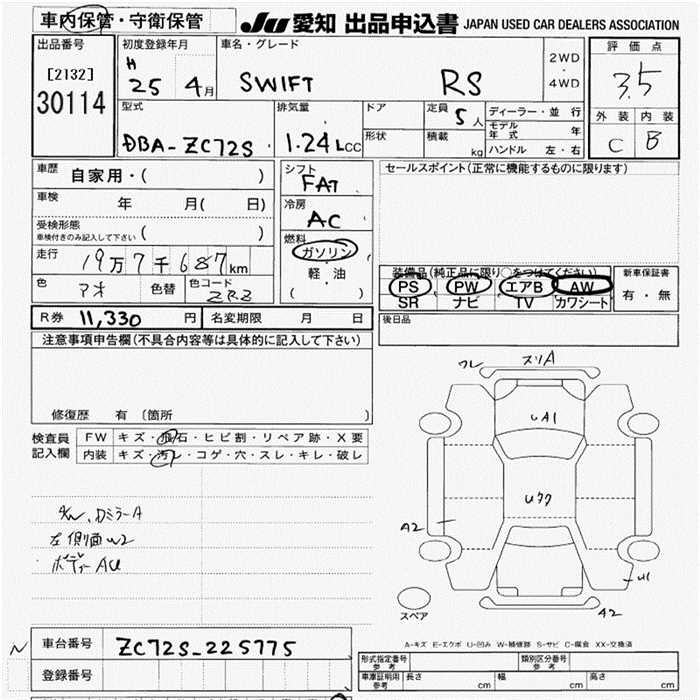 車内保管・守衛保管
JU 愛知 出品申込書 JAPAN USED CAR DEALERS ASSOCIATION
出品番号
[2132]
30114
初度登録年月
H
25 4月
車名・グレード
SWIFT RS
2WD
・
4WD
評価点
3.5
外装 内装
C B
型式
DBA-ZC72S
排気量
1.24LCC
ドア
形状
定員 5人
積載 kg
ディーラー・並行
モデル年式 年
ハンドル 左・右
車歴 自家用・( )
車検 年 月( 日)
受検形態
車検付きのみ記入して下さい ( )
走行 19万7千687km
色 アオ 色替 色コード ZRZ
シフト
FAT
冷房
AC
燃料
ガソリン
・
軽・油
( )
セールスポイント(正常に機能するものに限ります)
装備品(純正品に限り○をつけてください)
PS PW エアB AW
SR ナビ TV カワシート
新車保証書
有・無
R券 11,330 円 名変期限 月 日
後日品
注意事項申告欄(不具合内容等は具体的に記入して下さい)
修復歴 有 〔箇所 〕
検査員記入欄
FW キズ・飛石・ヒビ割・リペア跡・X要
内装 キズ・汚レ・コゲ・穴・スレ・キレ・破レ
カミラーA
左側面W2
ボディーAU
ワレ スリA
UA1
Uタク
A2
U1
A2
スペア
A-キズ E-エクボ U-凹み W-補修跡 S-サビ C-腐食 XX-交換済
N 車台番号 ZC72S-225775
登録番号
形式指定番号
参考
類別区分番号
参考
車庫証明用
参考
長さ cm 幅 cm 高さ cm